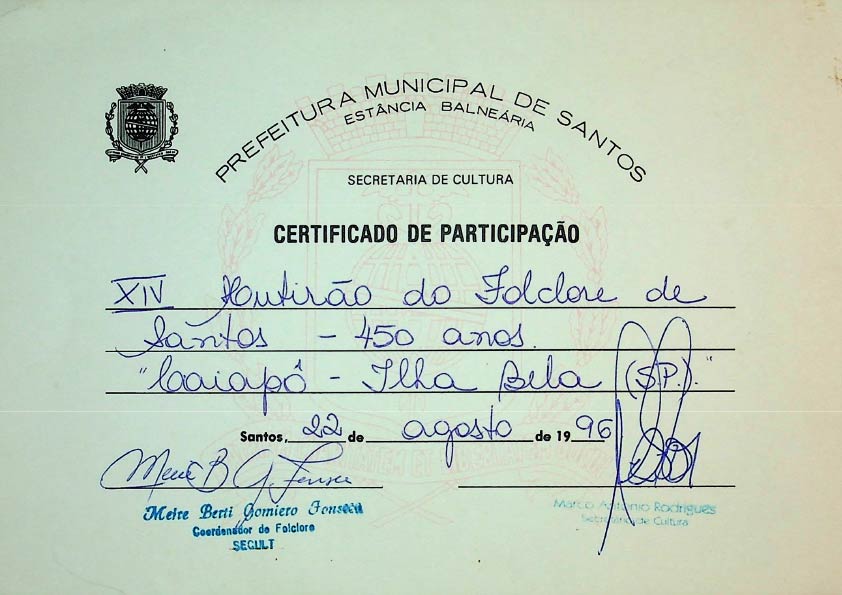 PREFEITURA MUNICIPAL DE SANTOS
ESTÂNCIA BALNEÁRIA
SECRETARIA DE CULTURA
CERTIFICADO DE PARTICIPAÇÃO
XIV Mutirão do Folclore de
Santos - 450 anos.
"Caiapô - Ilha Bela (S.P.)."
Santos, 22 de agosto de 1996
Meire B G Fonseca
Meire Berti Gomiero Fonseca
Coordenador de Folclore
SECULT
Marco Antonio Rodrigues
Secretário de Cultura